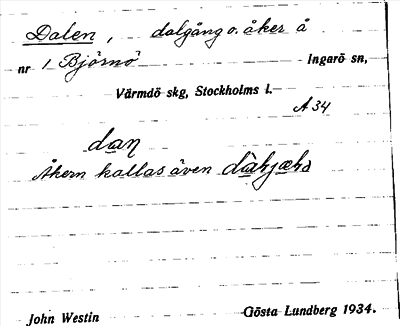 Dalen, dalgång o. åker å
nr 1 Björnö Ingarö sn,
Värmdö skg, Stockholms l.
A 34
daṇ
Åkern kallas även
John Westin Gösta Lundberg 1934.